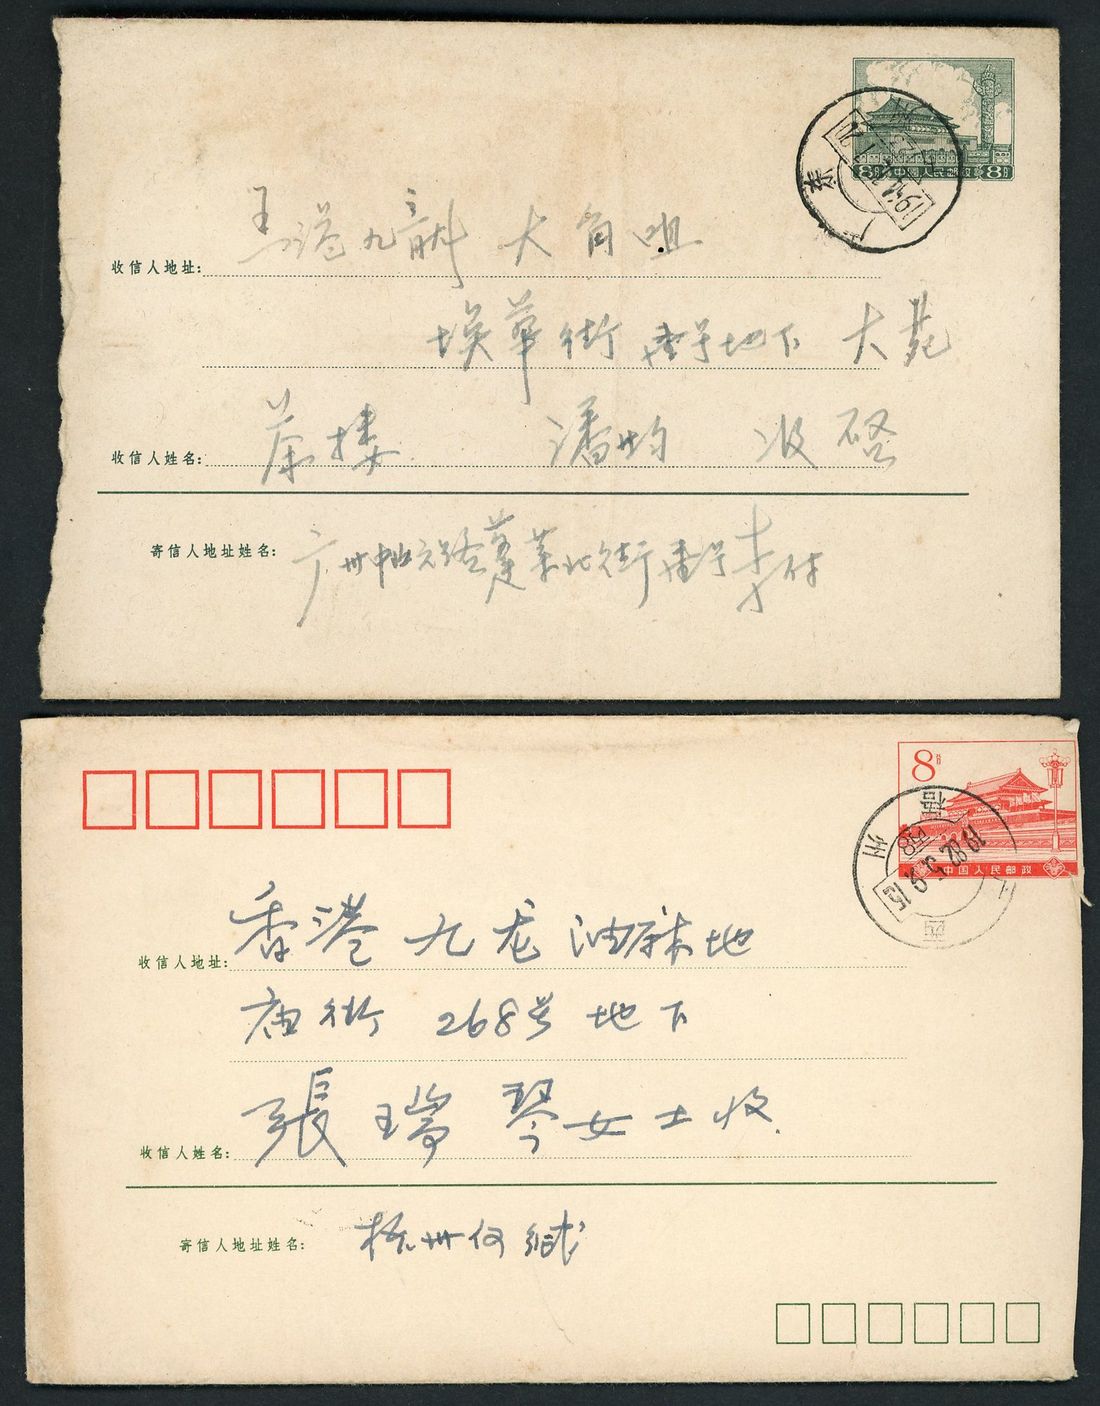 8分 中国人民邮政 8分
广东
收信人地址: 港九龍 大角咀
埃華街 地下 大苑
收信人姓名: 茶楼 潘均 收啓
寄信人地址姓名: 广州中山六路蓬莱北街 李付
8分
中国人民邮政
广西 梧州
1982.5.9.15
收信人地址: 香港 九龙 油麻地
庙街 268号 地下
收信人姓名: 張瑞琴女士收
寄信人地址姓名: 梧州何